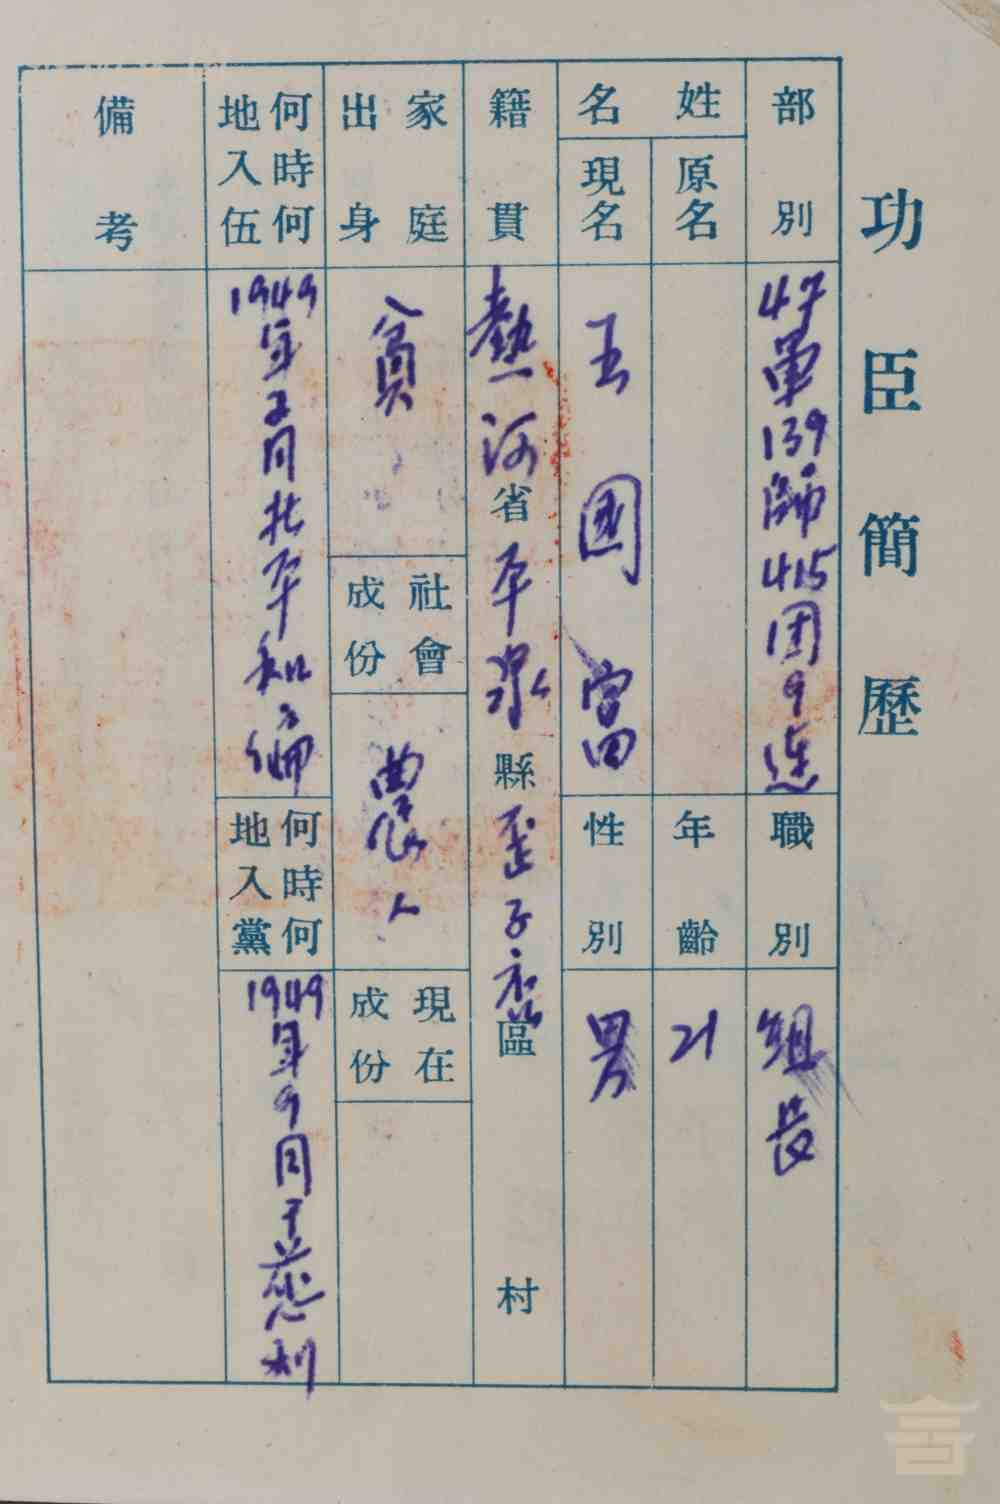 功臣簡歷
部別
47軍139師415团9連
職別
組長
姓名
原名
年齡
21
現名
王國富
性別
男
籍貫
熱河省平泉縣
區
村
家庭出身
貧
社會成份
農人
現在成份
何時何地入伍
1949年2月北平和编
何時何地入黨
1949年9月于慈利
備考